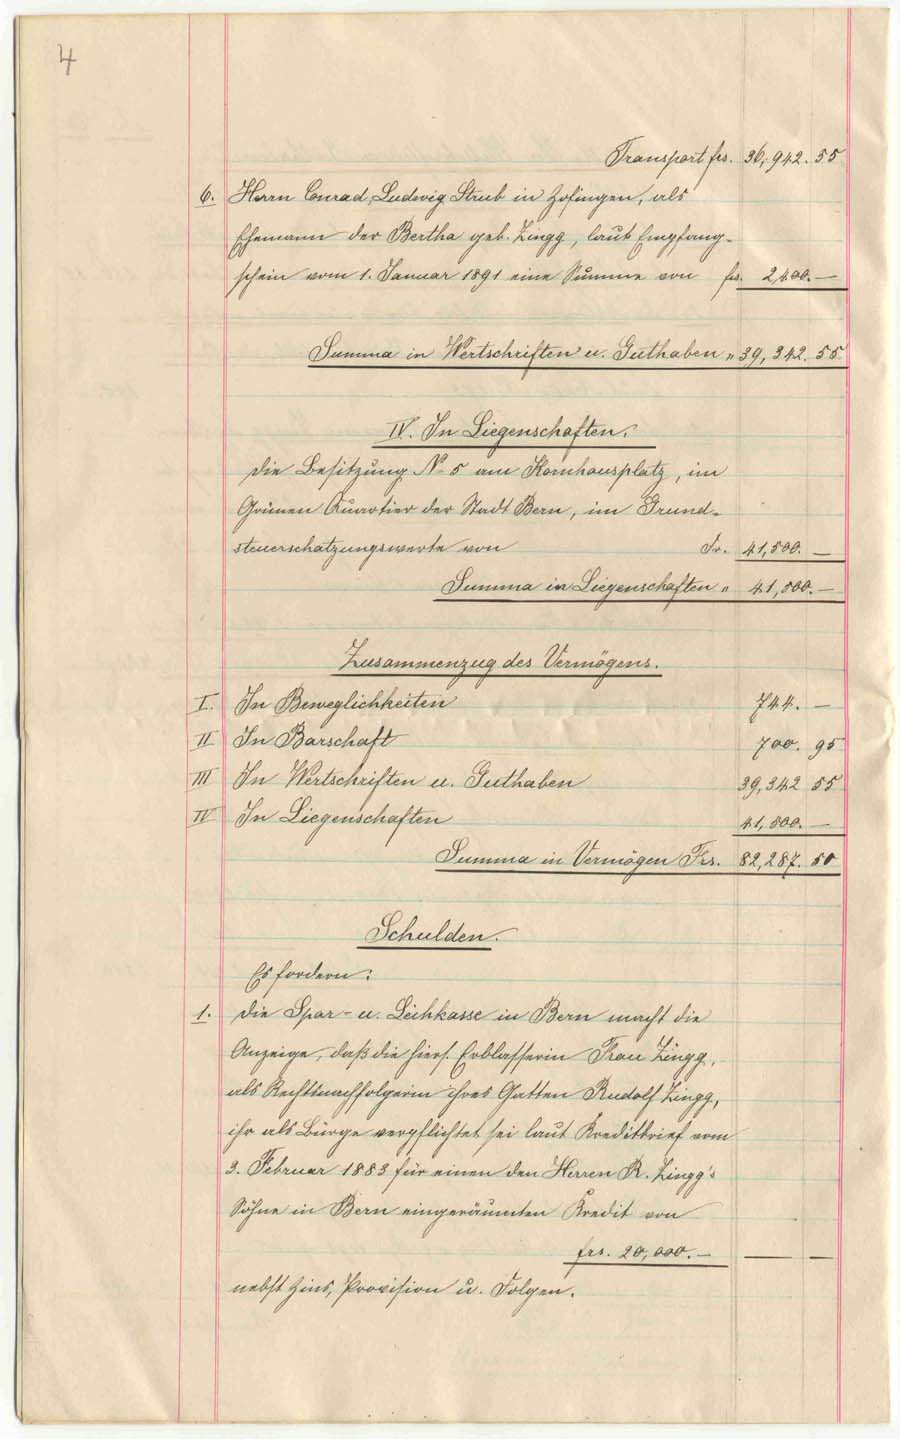 4
Transport frs. 36,942. 55
6. Herrn Conrad Ludwig Strub in Zofingen, als
Ehemann der Bertha geb. Zingg, laut Empfang-
schein vom 1. Januar 1891 eine Summe von frs. 2,400. —
Summa in Wertschriften u. Guthaben " 39,342. 55.
IV. In Liegenschaften.
die Besitzung No 5 am Kornhausplatz, im
Grünen Quartier der Stadt Bern, im Grund-
steuerschatzungswerte von Fr. 41,500. —
Summa in Liegenschaften " 41,500. —
Zusammenzug des Vermögens.
I. In Beweglichkeiten 744. —
II In Barschaft 700. 95
III In Wertschriften u. Guthaben 39,342 55
IV In Liegenschaften 41,500. —
Summa in Vermögen Frs. 82,287. 50
Schulden.
Es fordern:
1. die Spar- u. Leihkasse in Bern macht die
Anzeige, daß die hiers. Erblasserin Frau Zingg,
als Rechtsnachfolgerin ihres Gatten Rudolf Zingg,
ihr als Bürge verpflichtet sei laut Kreditbrief vom
3. Februar 1883 für einen den Herren R. Zingg's
Söhne in Bern eingeräumten Kredit von
frs. 20,000. — — —
nebst Zins, Provision u. Folgen.